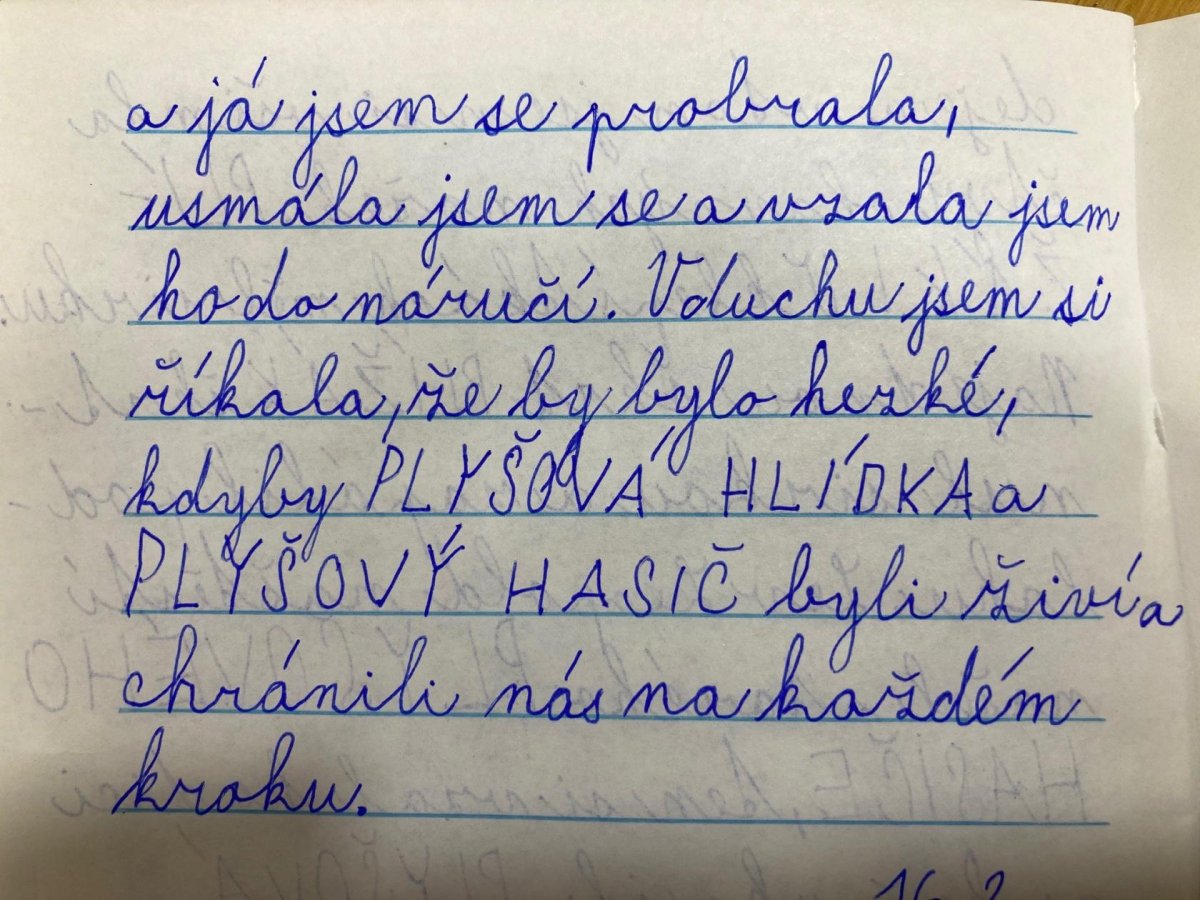 a já jsem se probrala,
usmála jsem se a vzala jsem
ho do náručí. V duchu jsem si
říkala, že by bylo hezké,
kdyby PLYŠOVÁ HLÍDKA a
PLYŠOVÝ HASIČ byli živí a
chránili nás na každém
kroku.